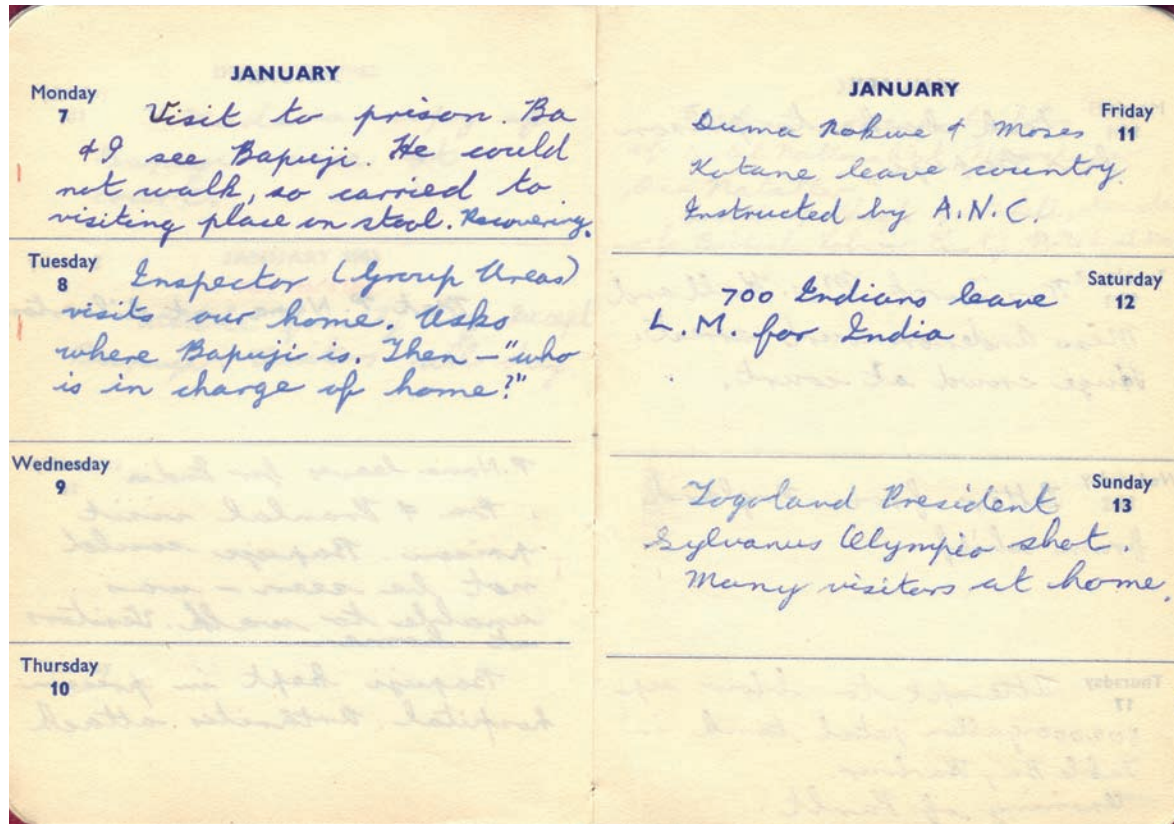 JANUARY
Monday
7
Visit to prison. Ba
& I see Bapuji. He could
not walk, so carried to
visiting place on stool. Recovering.
Tuesday
8
Inspector (Group Areas)
visits our home. Asks
where Bapuji is. Then – "who
is in charge of home?"
Wednesday
9
Thursday
10
JANUARY
Friday
11
Duma Nokwe & Moses
Kotane leave country.
Instructed by A.N.C
Saturday
12
700 Indians leave
L.M. for India
Sunday
13
Togoland President
Sylvanus Olympio shot.
Many visitors at home.